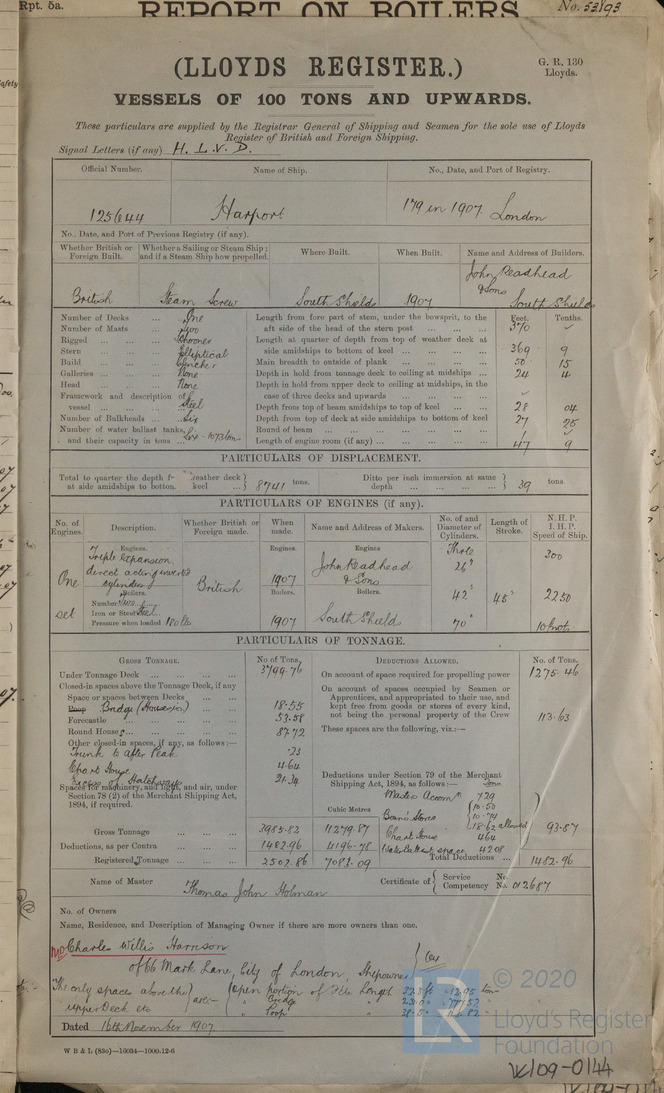 Rpt. 5a.
REPORT ON BOILERS
No. 53193
(LLOYDS REGISTER.)
G. R. 130
Lloyds.
VESSELS OF 100 TONS AND UPWARDS.
These particulars are supplied by the Registrar General of Shipping and Seamen for the sole use of Lloyds
Register of British and Foreign Shipping.
Signal Letters (if any) H. L. V. D.
Official Number. Name of Ship. No., Date, and Port of Registry.
125644 Harport 179 in 1907 London
No., Date, and Port of Previous Registry (if any).
Whether British or Foreign Built. Whether a Sailing or Steam Ship; and if a Steam Ship how propelled. Where Built. When Built. Name and Address of Builders.
John Readhead
& Sons
British Steam Screw South Shields 1907 South Shields
Feet. Tenths.
Number of Decks ... One Length from fore part of stem, under the bowsprit, to the
Number of Masts ... Two aft side of the head of the stern post ... 370
Rigged ... Schooner Length at quarter of depth from top of weather deck at
Stern ... Elliptical side amidships to bottom of keel ... 369 9
Build ... Clencher Main breadth to outside of plank ... 50 15
Galleries ... None Depth in hold from tonnage deck to ceiling at midships ... 24 4
Head ... None Depth in hold from upper deck to ceiling at midships, in the
Framework and description of case of three decks and upwards ...
vessel ... Steel Depth from top of beam amidships to top of keel ... 28 04
Number of Bulkheads ... Six Depth from top of deck at side amidships to bottom of keel 27 25
Number of water ballast tanks, Round of beam ...
and their capacity in tons ... Six - 1073 tons Length of engine room (if any) ... 47 9
PARTICULARS OF DISPLACEMENT.
Total to quarter the depth weather deck Ditto per inch immersion at same
at side amidships to bottom keel ... 8741 tons. depth ... 39 tons
PARTICULARS OF ENGINES (if any).
No. of Engines. Description. Whether British or Foreign made. When made. Name and Address of Makers. No. of and Diameter of Cylinders. Length of Stroke. N.H.P. I.H.P. Speed of Ship.
Engines. Engines. Engines Three
Triple expansion 300
direct acting inverted John Readhead
cylinders 1907 & Sons
One British
Boilers. Boilers. Boilers. 42" 45" 2250
Number
Iron or Steel Steel
set Pressure when loaded 180 lbs 1907 South Shields 70" 10 knots
PARTICULARS OF TONNAGE.
GROSS TONNAGE. No of Tons. DEDUCTIONS ALLOWED. No. of Tons.
Under Tonnage Deck ... 3799.76 On account of space required for propelling power 1275.46
Closed-in spaces above the Tonnage Deck, if any On account of spaces occupied by Seamen or
Space or spaces between Decks ... Apprentices, and appropriated to their use, and
Poop Bridge (House in) ... 18.55 kept free from goods or stores of every kind,
Forecastle ... 53.58 not being the personal property of the Crew 113.63
Round Houses ... 87.72 These spaces are the following, viz.:—
Other closed-in spaces, if any, as follows:—
Trunk to After Peak .23
Chart House 4.64
Excess of Hatchways 21.34 Deductions under Section 79 of the Merchant
Spaces for machinery, and light, and air, under Shipping Act, 1894, as follows:—
Section 78 (2) of the Merchant Shipping Act, Masters Accom 7.29
1894, if required. Cubic Metres Boatn' Stores 10.50
10.74
18.62 allowed 93.87
Gross Tonnage ... 3985.82 11279.87 Chart House 4.64
Deductions, as per Contra ... 1482.96 4196.78 Water ballast space 42.08
Registered Tonnage ... 2502.86 7083.09 Total Deductions ... 1482.96
Name of Master Thomas John Holman Certificate of Service Competency No. No. 012687
No. of Owners
Name, Residence, and Description of Managing Owner if there are more owners than one.
Charles Willis Harrison
of 66 Mark Lane, City of London, Shipowner
The only spaces above the are Open portion of Length
upper Deck etc Bridge
Poop
Dated 16th November 1907
W B & L (83o)—10034—1000.12-6
© 2020
Lloyd's Register
Foundation
W109-0144